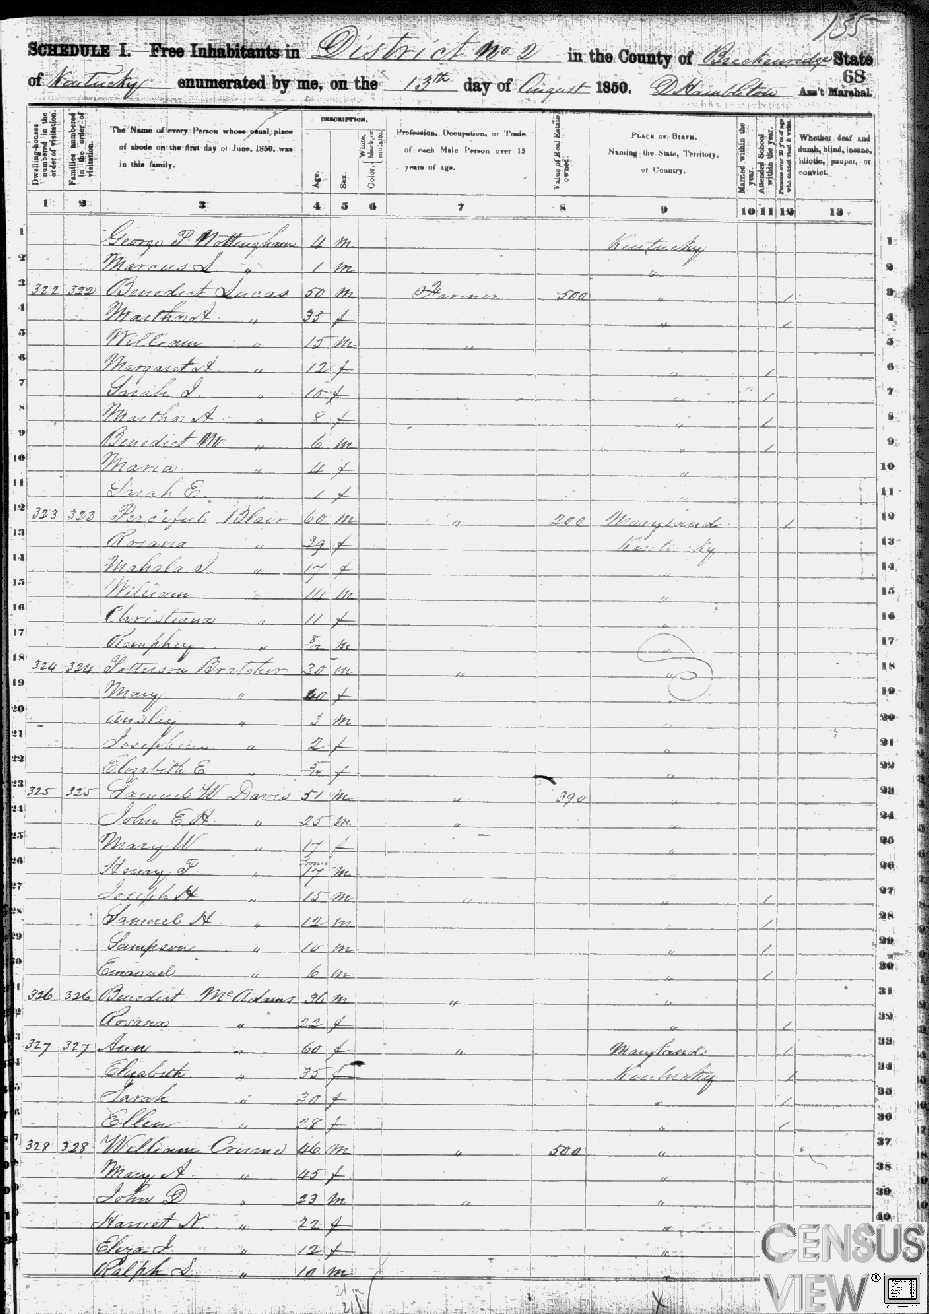 135
SCHEDULE I. Free Inhabitants in District No 2 in the County of Breckenridge State
of Kentucky enumerated by me, on the 13th day of August 1850. D Hambleton Ass't Marshal.
68
Dwelling-houses numbered in the order of visitation.
Families numbered in the order of visitation.
The Name of every Person whose usual place of abode on the first day of June, 1850, was in this family.
DESCRIPTION.
Age.
Sex.
Color, White, black, or mulatto.
Profession, Occupation, or Trade of each Male Person over 15 years of age.
Value of Real Estate owned.
PLACE OF BIRTH. Naming the State, Territory, or Country.
Married within the year.
Attended School within the year.
Persons over 20 y'rs of age who cannot read & write.
Whether deaf and dumb, blind, insane, idiotic, pauper, or convict.
1 2 3 4 5 6 7 8 9 10 11 12 13
1 George P Nottingham 4 m Kentucky 1
2 Marcus L " 1 m " 2
3 322 322 Benedict Lucas 50 m Farmer 500 " 1 3
4 Martha A " 35 f " 1 4
5 William " 15 m " " 5
6 Margaret A " 12 f " 1 6
7 Sarah J. " 10 f " 1 7
8 Martha A " 8 f " 1 8
9 Benedict M " 6 m " 1 9
10 Maria " 4 f " 10
11 Sarah E " 1 f " 11
12 323 323 Perciful Blair 60 m " 200 Maryland 1 12
13 Rosana " 39 f Kentucky 13
14 Mahala J. " 17 f " 14
15 William " 14 m " 15
16 Christiana " 11 f " 16
17 m " 17
18 324 324 Patterson 30 m " " 18
19 Mary " f " 19
20 Ausley " 3 m " 20
21 Josephine " 2 f " 21
22 Elizabeth E " f " 22
23 325 325 Samuel W Davis 51 m " 390 " 23
24 John E H " 25 m " " 24
25 Mary W " 17 f " 25
26 Henry P " 17 m " 26
27 Joseph H " 15 m " " 1 27
28 Samuel H " 12 m " 1 28
29 Sampson " 10 m " 1 29
30 Emanuel " 6 m " 1 30
31 326 326 Benedict McAdams 36 m " " 31
Rosana " 22 f " 1 32
327 327 Ann " 60 f " Maryland 1 33
Elizabeth " 35 f Kentucky 1 34
Sarah " 30 f " 1 35
Ellen " 28 f " 1 36
328 328 William 46 m " 500 " 37
Mary A. " 45 f " 38
John D " 23 m " " 39
Harriet N. " 22 f " 40
Eliza J. " 12 f "
Ralph S. " 10 m "
CENSUS
VIEW®